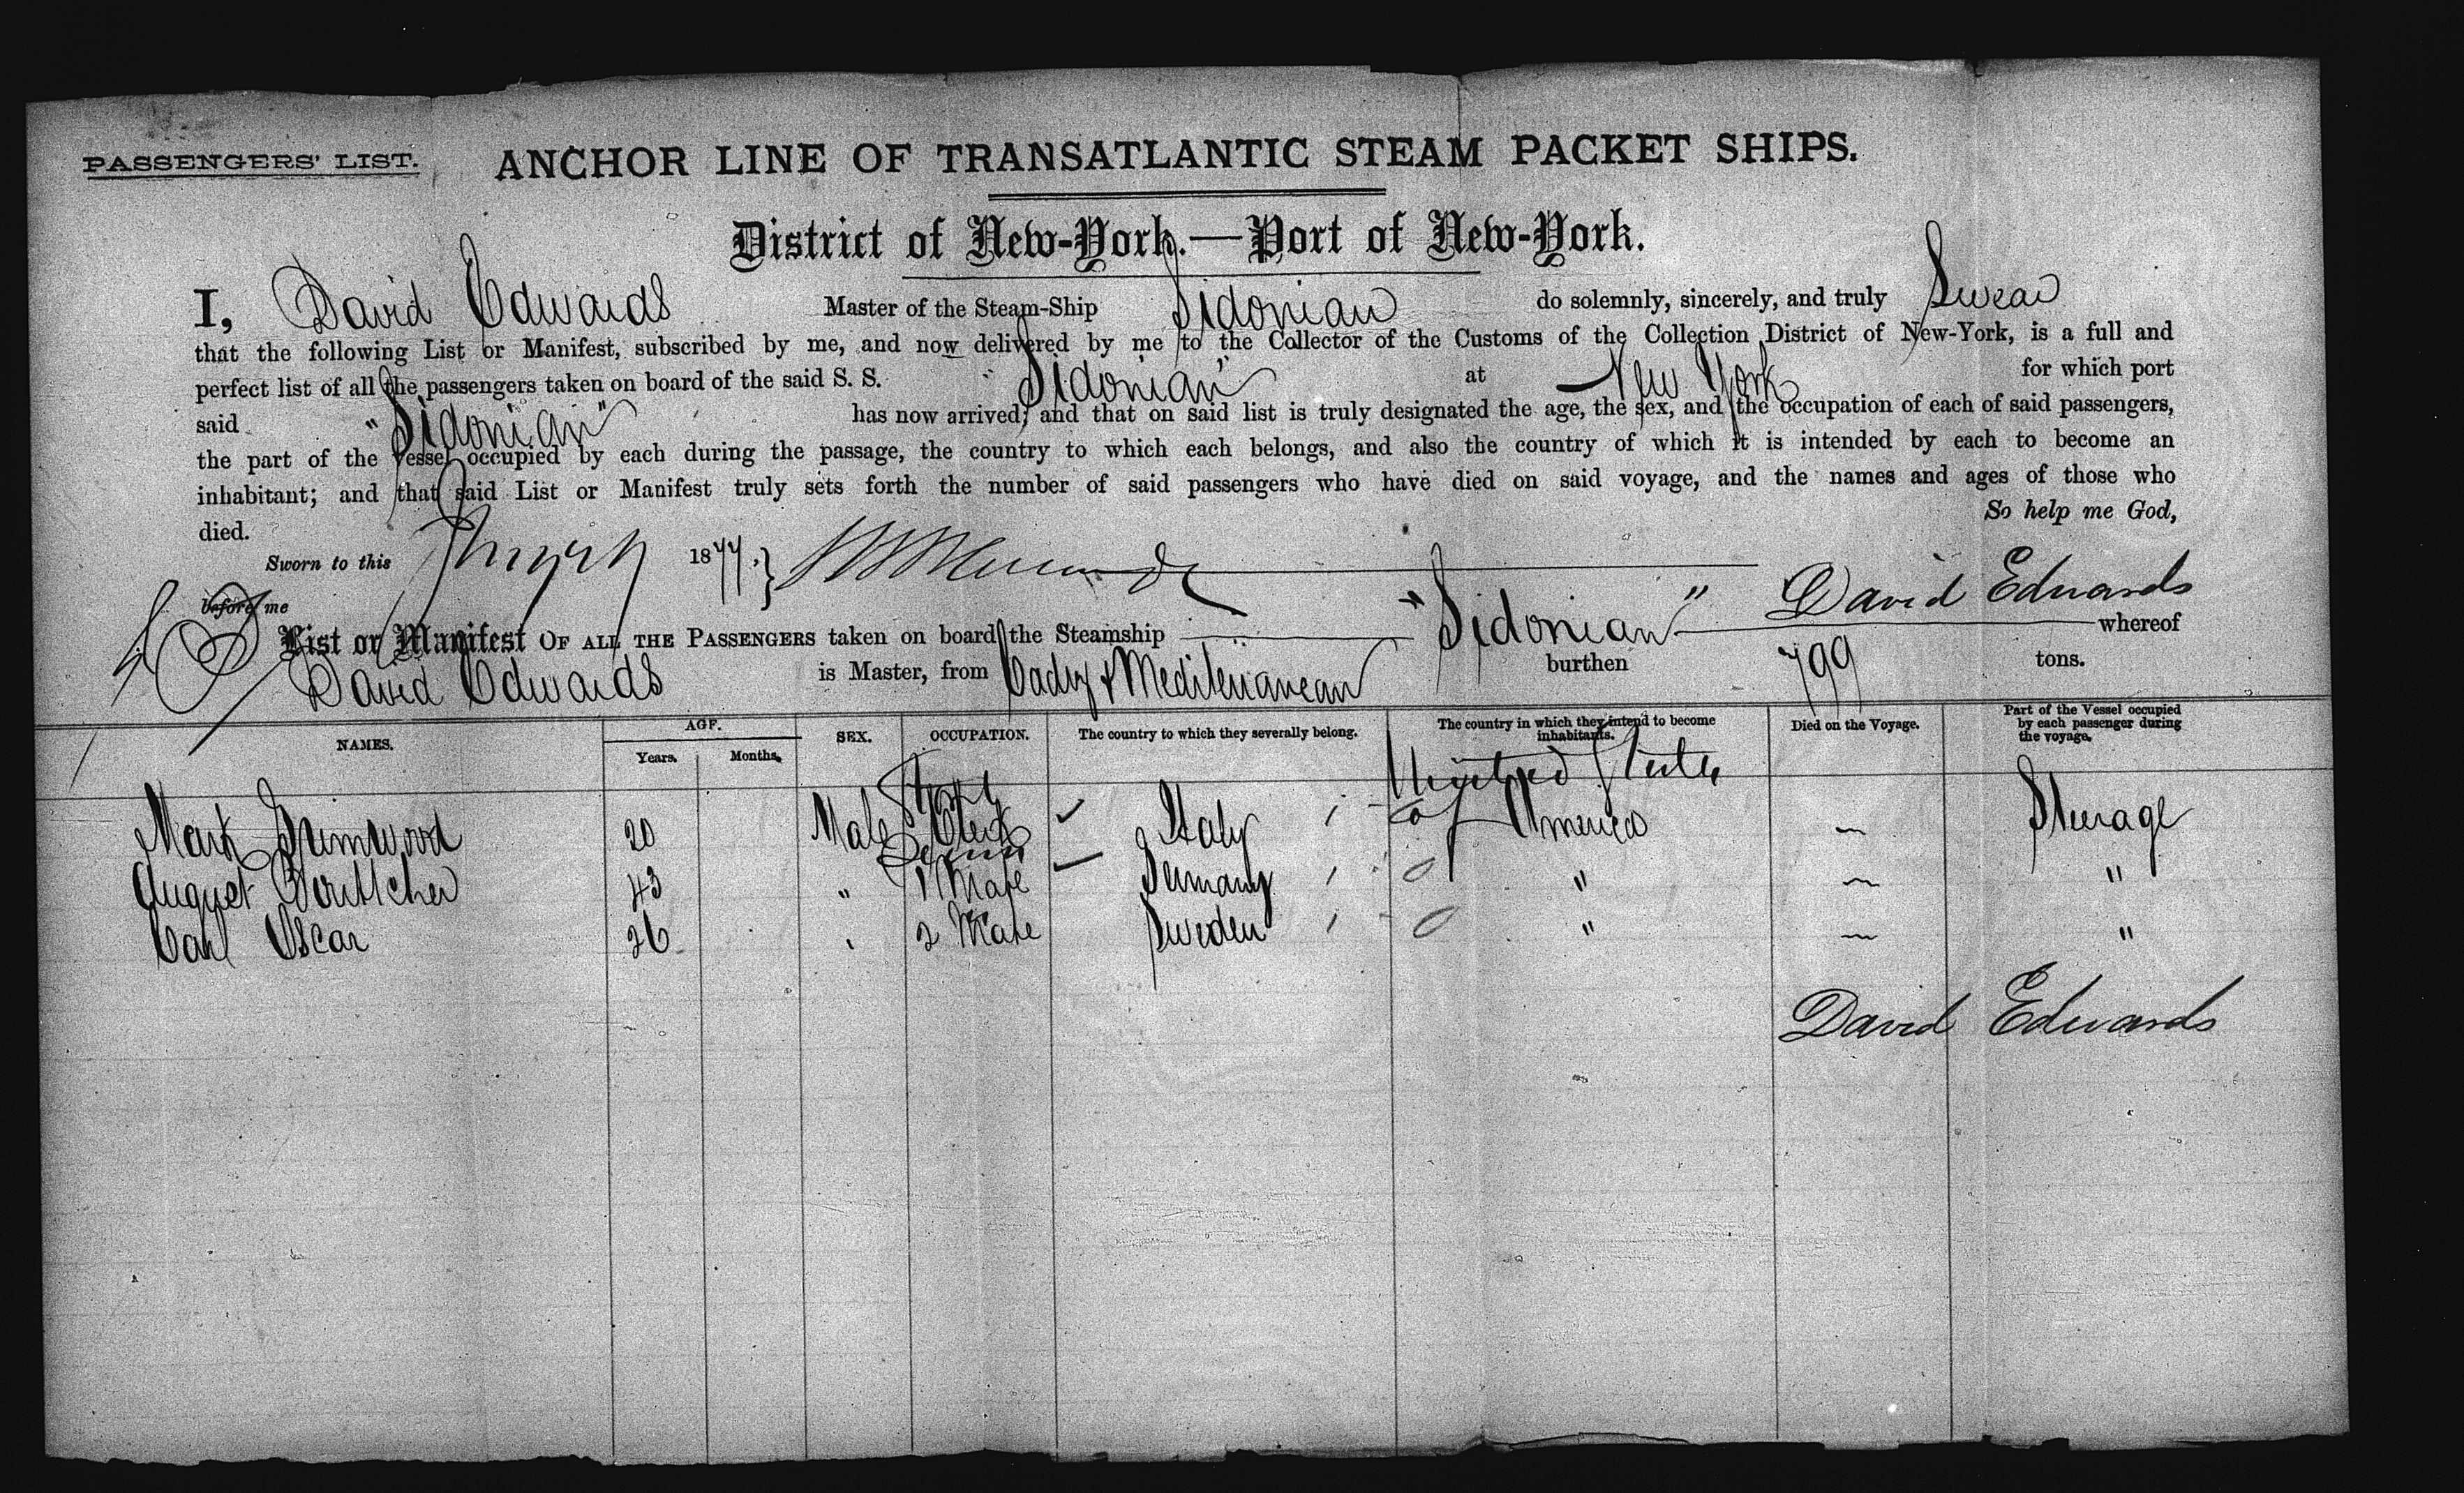 PASSENGERS' LIST. ANCHOR LINE OF TRANSATLANTIC STEAM PACKET SHIPS.
District of New-York.—Port of New-York.
I, David Edwards Master of the Steam-Ship Sidonian do solemnly, sincerely, and truly Swear
that the following List or Manifest, subscribed by me, and now delivered by me to the Collector of the Customs of the Collection District of New-York, is a full and
perfect list of all the passengers taken on board of the said S. S. "Sidonian" at New York for which port
said "Sidonian" has now arrived; and that on said list is truly designated the age, the sex, and the occupation of each of said passengers,
the part of the vessel occupied by each during the passage, the country to which each belongs, and also the country of which it is intended by each to become an
inhabitant; and that said List or Manifest truly sets forth the number of said passengers who have died on said voyage, and the names and ages of those who
died. So help me God,
Sworn to this 1877.
before me David Edwards
List or Manifest OF ALL THE PASSENGERS taken on board the Steamship "Sidonian" whereof
David Edwards is Master, from Cadiz & Mediterranean burthen 799 tons.
NAMES. AGE. Years. Months. SEX. OCCUPATION. The country to which they severally belong. The country in which they intend to become inhabitants. Died on the Voyage. Part of the Vessel occupied by each passenger during the voyage.
United States
Mark Grimwood 20 Male Clerk Italy of America Steerage
August 43 " 1 Mate Germany " "
Carl Oscar 26 2 Mate Sweden " "
David Edwards